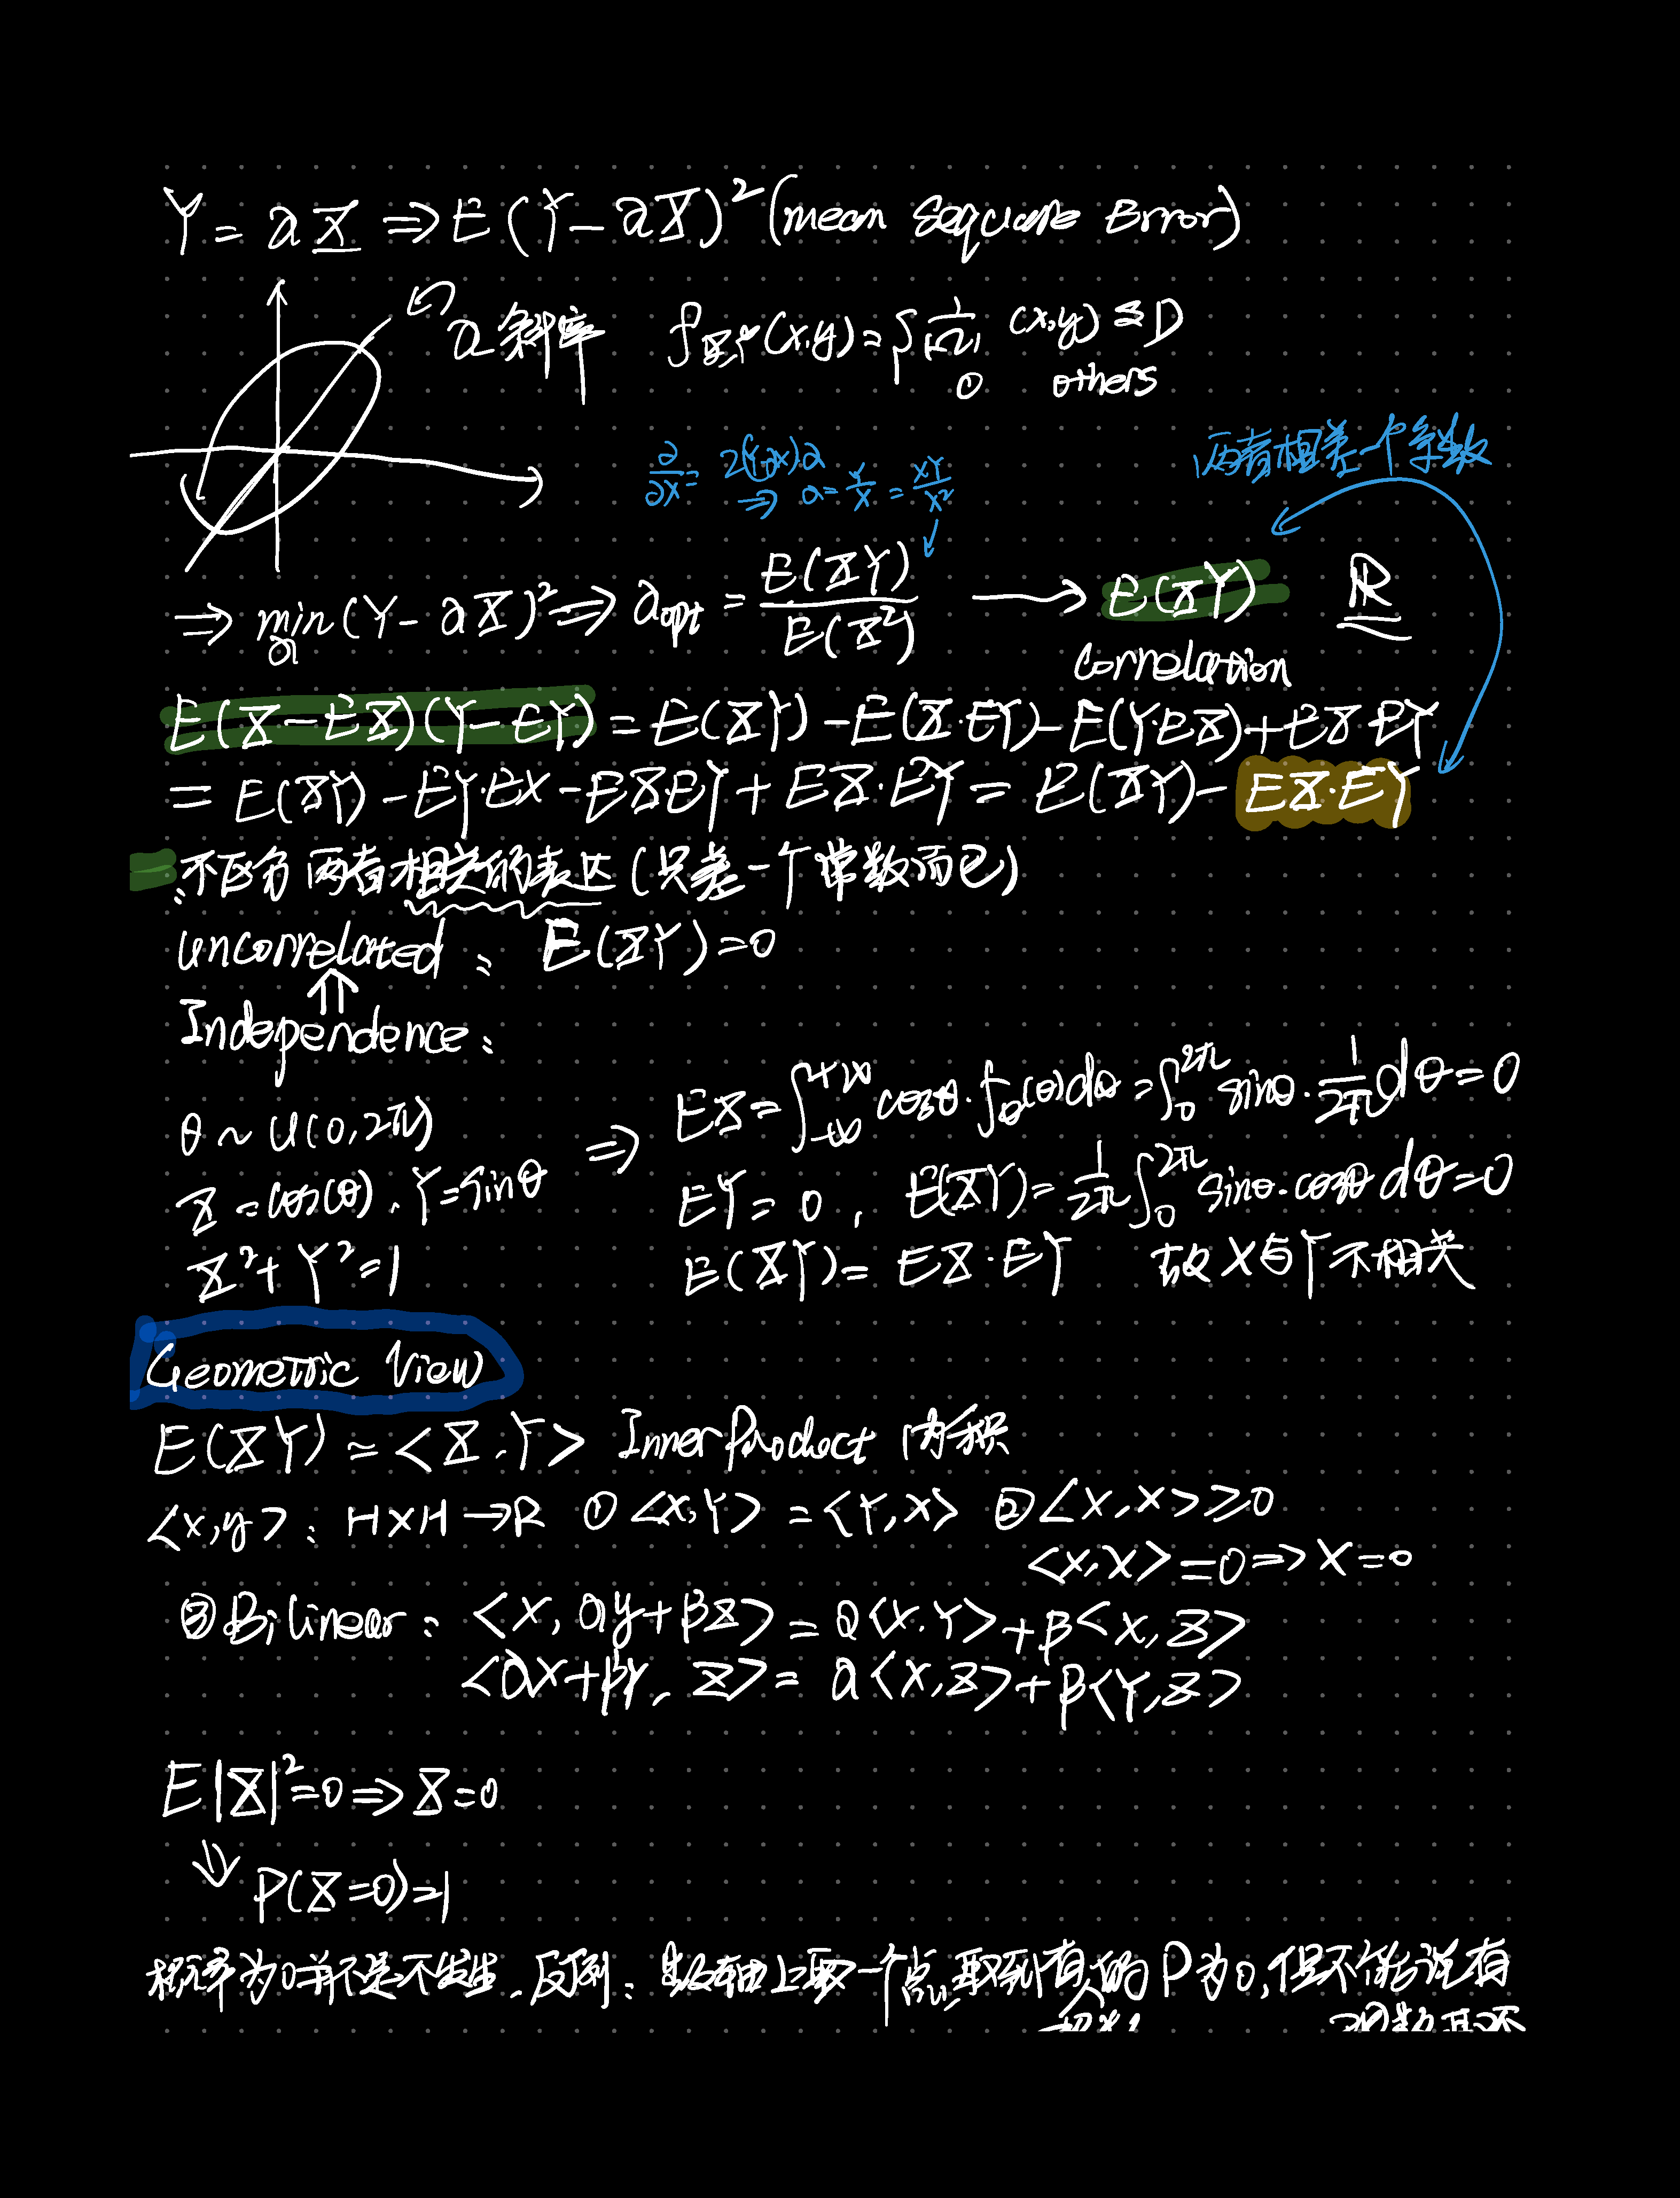 Y = aX ⇒ E(Y - aX)² (mean Sequare Error)
a 斜率 f_{X,Y}(x,y) = { 1/|Ω| (x,y) ∈ D
0 others
两者相差一个常数
∂/∂X = 2(Y-aX)·a
⇒ a = Y/X = XY/X²
⇒ min_a (Y - aX)² ⇒ a_opt = E(XY)/E(X²) → E(XY) R
correlation
E(X-EX)(Y-EY) = E(XY) - E(X·EY) - E(Y·EX) + EX·EY
= E(XY) - EY·EX - EX·EY + EX·EY = E(XY) - EX·EY
不区分 两者相关的表达 (只差一个常数而已)
uncorrelated: E(XY) = 0
⇑
Independence:
θ ~ U(0, 2π)
X = cos(θ), Y = sinθ
X² + Y² = 1
⇒ EX = ∫_{-∞}^{+∞} cosθ·f_θ(θ)dθ = ∫_0^{2π} sinθ·1/2π dθ = 0
EY = 0, E(XY) = 1/2π ∫_0^{2π} sinθ·cosθ dθ = 0
E(XY) = EX·EY 故X与Y不相关
Geometric View
E(XY) = <X,Y> Inner Product 内积
<x,y>: H×H → R ① <X,Y> = <Y,X> ② <X,X> ≥ 0
<X,X> = 0 ⇒ X = 0
③ Bilinear: <X, ay+βZ> = a<X,Y> + β<X,Z>
<aX+βY, Z> = a<X,Z> + β<Y,Z>
E|X|² = 0 ⇒ X = 0
⇓ P(X=0) = 1
概率为0并不是不发生, 反例: 数轴上取一个点, 取到有的P为0, 但不能说有